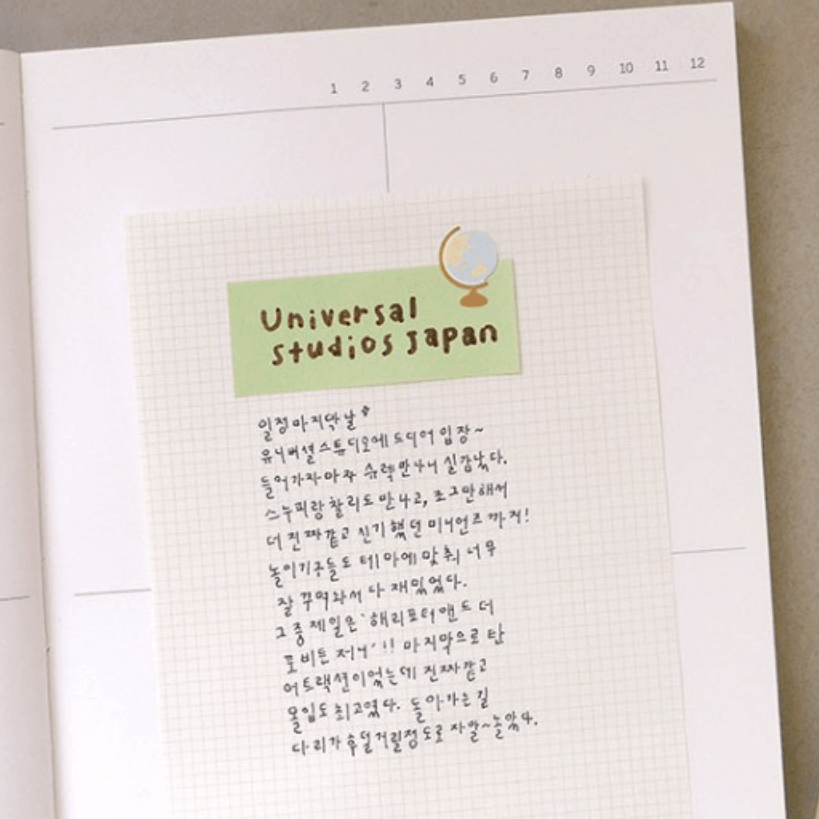 1 2 3 4 5 6 7 8 9 10 11 12
Universal
studios Japan
일정 마지막 날
유니버셜 스튜디오에 드디어 입장~
들어가자마자 슈렉 만나니 실감났다.
스누피랑 찰리도 만나고, 조그만해서
더 진짜같고 신기했던 미니언즈까지!
놀이기구들도 테마에 맞춰 너무
잘 꾸며놔서 다 재밌었다.
그 중 제일은 '해리포터 앤 드 더
포비든 저니' !! 마지막으로 탄
어트랙션이었는데 진짜 같고
몰입도 최고였다. 돌아가는 길
다리가 후덜거릴정도로 자알~놀았다.